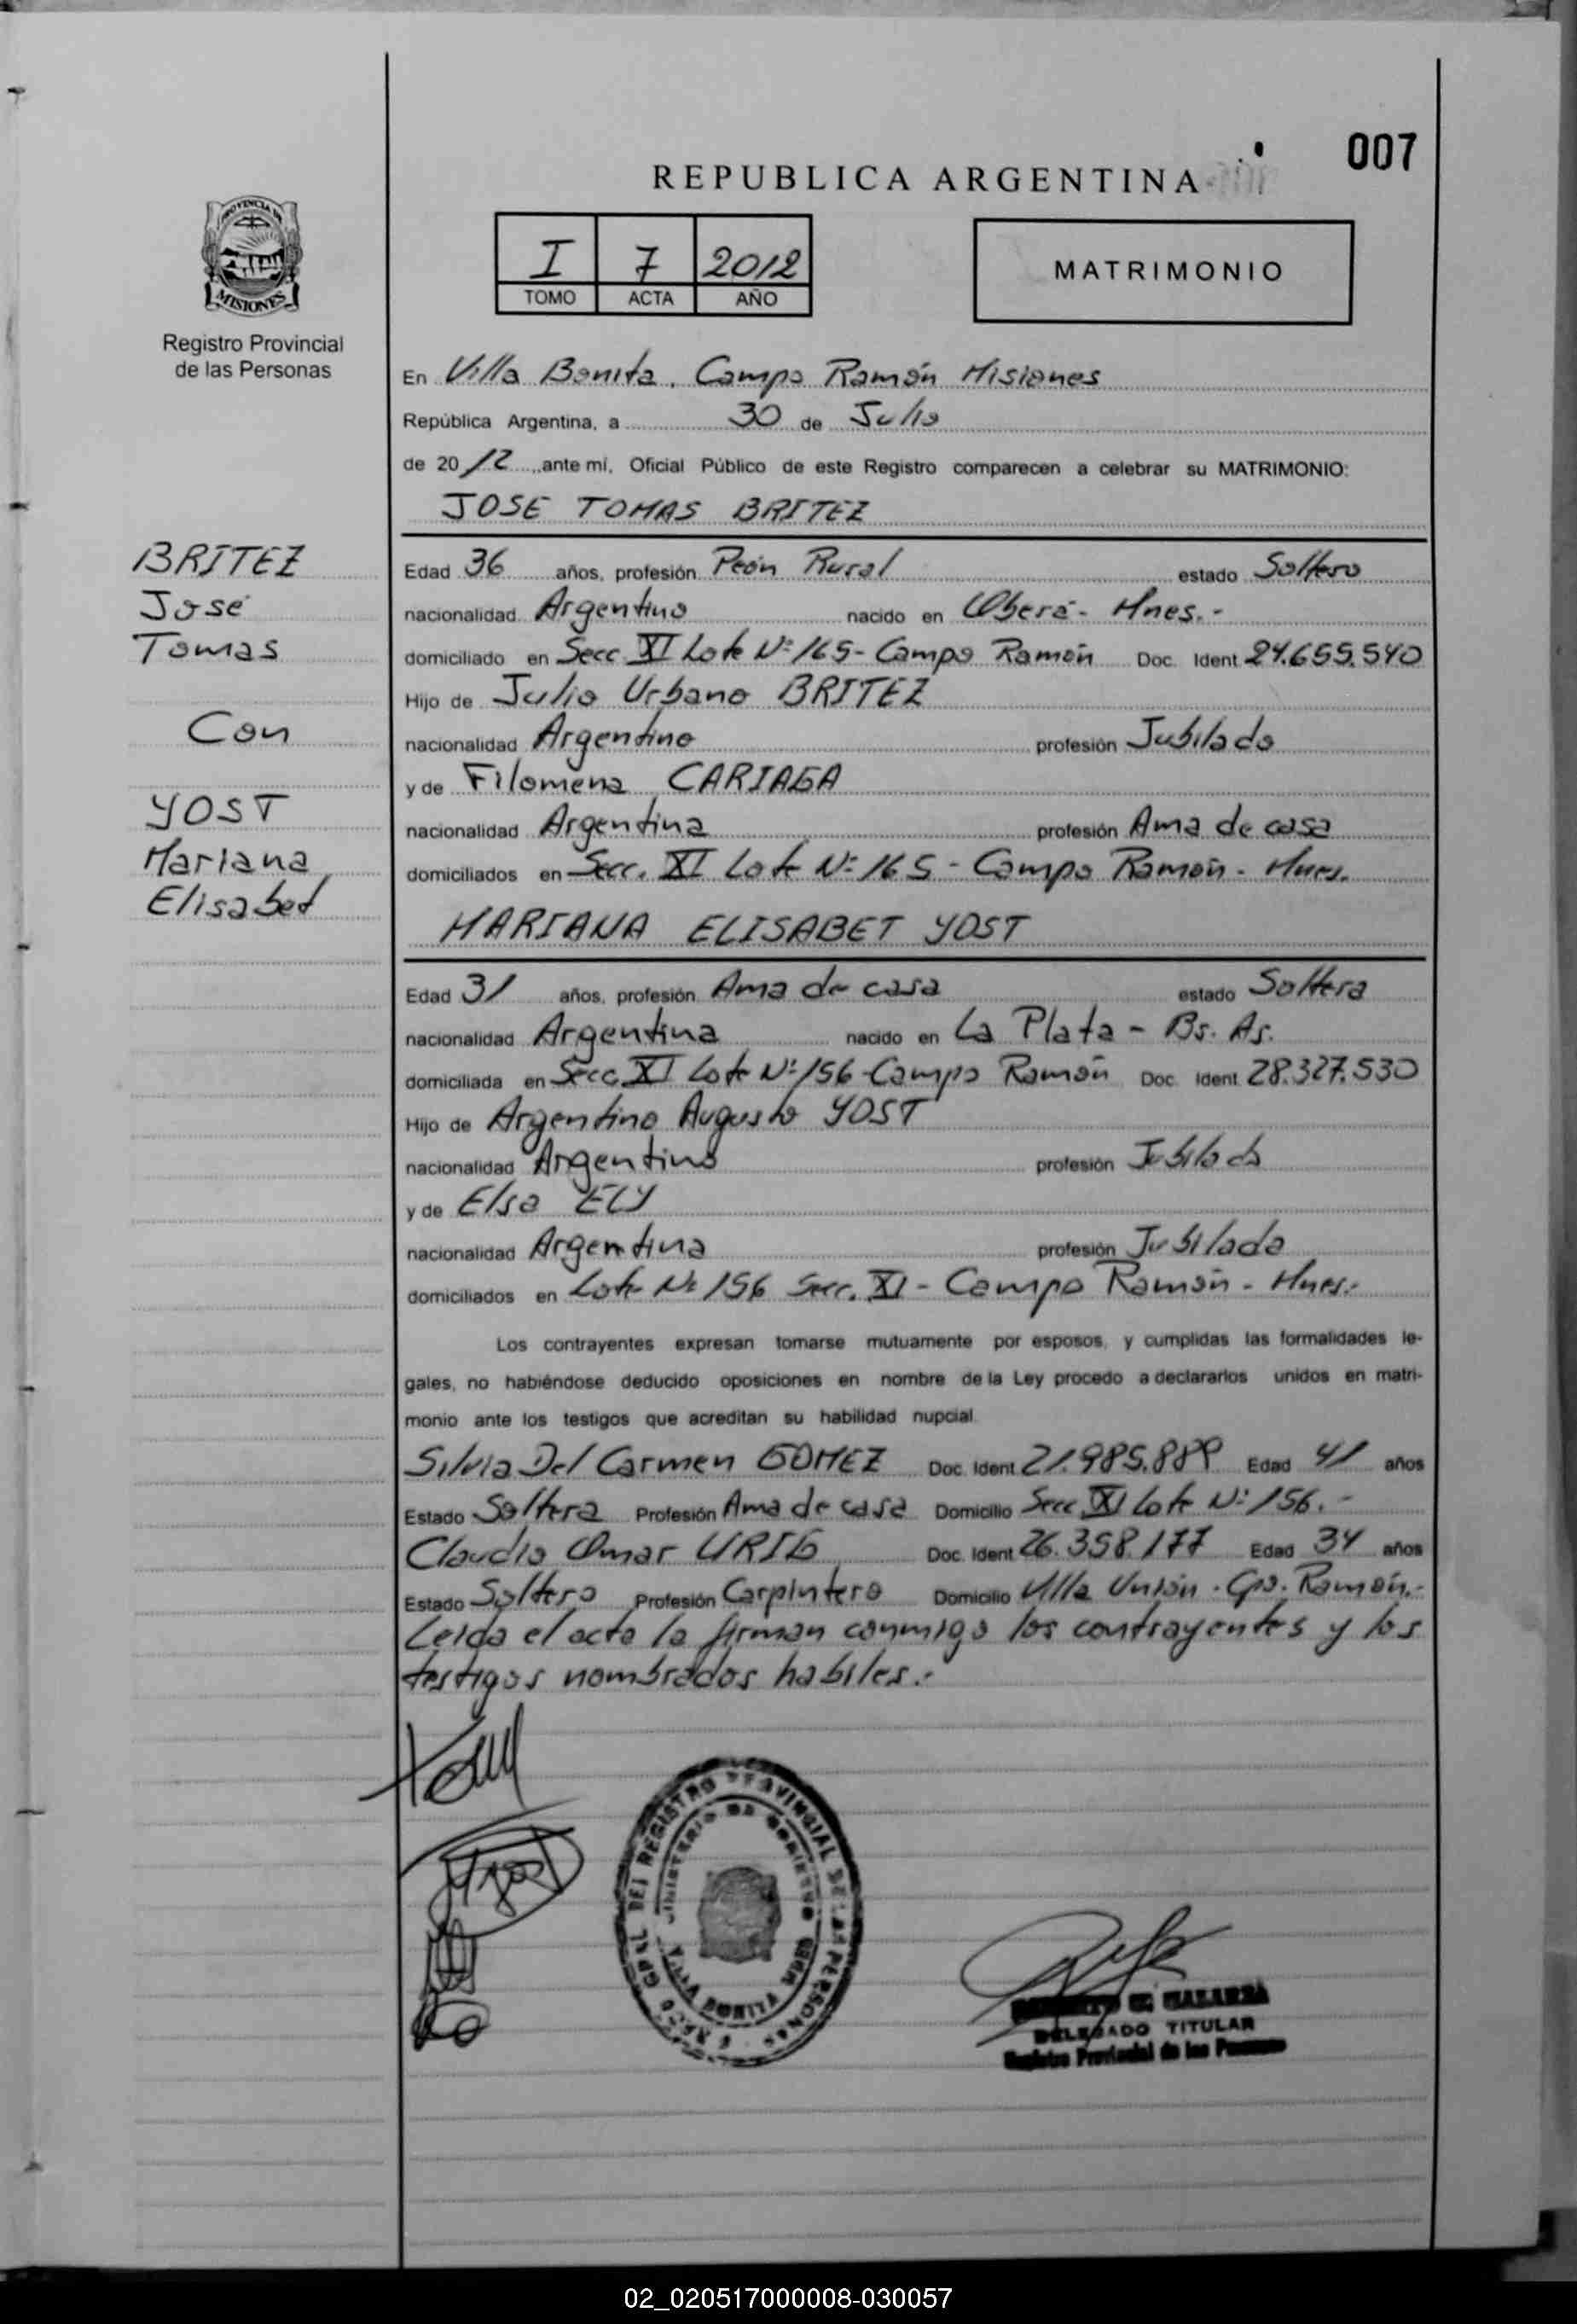 007
REPUBLICA ARGENTINA
PROVINCIA DE
MISIONES
Registro Provincial
de las Personas
I 7 2012
TOMO ACTA AÑO
MATRIMONIO
En Villa Bonita, Campo Ramón Misiones
República Argentina, a 30 de Julio
de 2012 ante mí, Oficial Público de este Registro comparecen a celebrar su MATRIMONIO:
JOSE TOMAS BRITEZ
BRITEZ
José
Tomas
Con
YOST
Mariana
Elisabet
Edad 36 años, profesión Peón Rural estado Soltero
nacionalidad Argentino nacido en Oberá - Mnes.-
domiciliado en Secc XI Lote Nº 165 - Campo Ramón Doc. Ident 24.655.540
Hijo de Julio Urbano BRITEZ
nacionalidad Argentino profesión Jubilado
y de Filomena CARIAGA
nacionalidad Argentina profesión Ama de casa
domiciliados en Secc. XI Lote Nº 165 - Campo Ramón - Mnes.
MARIANA ELISABET YOST
Edad 31 años, profesión Ama de casa estado Soltera
nacionalidad Argentina nacido en La Plata - Bs. As.
domiciliada en Secc XI Lote Nº 156 - Campo Ramón Doc. Ident 28.327.530
Hijo de Argentino Augusto YOST
nacionalidad Argentino profesión Jubilado
y de Elsa ELY
nacionalidad Argentina profesión Jubilada
domiciliados en Lote Nº 156 Secc. XI - Campo Ramón - Mnes.-
Los contrayentes expresan tomarse mutuamente por esposos, y cumplidas las formalidades le-
gales, no habiéndose deducido oposiciones en nombre de la Ley procedo a declararlos unidos en matri-
monio ante los testigos que acreditan su habilidad nupcial.
Silvia Del Carmen GOMEZ Doc. Ident 21.985.889 Edad 41 años
Estado Soltera Profesión Ama de casa Domicilio Secc XI Lote Nº 156.-
Claudio Omar URIG Doc. Ident 26.358.177 Edad 34 años
Estado Soltero Profesión Carpintero Domicilio Villa Unión - Cpo. Ramón.-
Leída el acta la firman conmigo los contrayentes y los
testigos nombrados habiles.-
DEL REGISTRO PROVINCIAL DE LAS PERSONAS
MINISTERIO DE GOBIERNO
VILLA BONITA MNES
DELEGADO TITULAR
Registro Provincial de las Personas
02_020517000008-030057